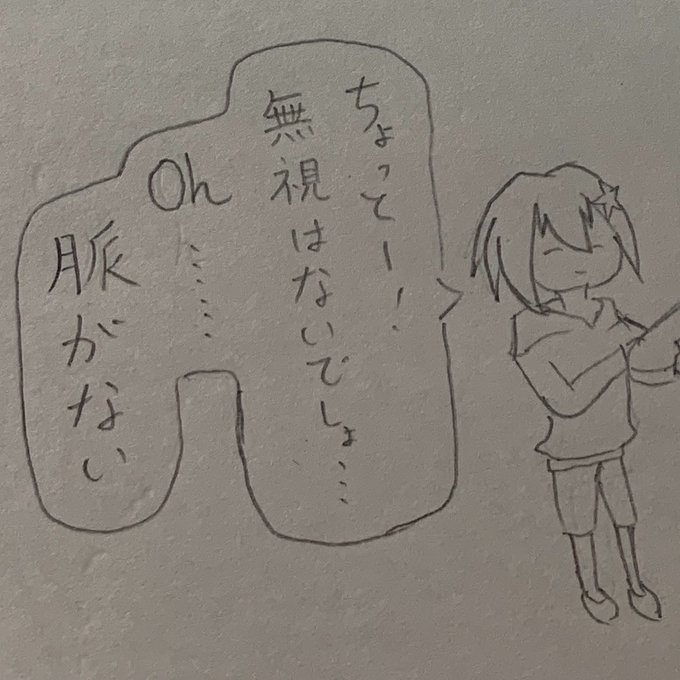 ちょっとー!
無視はないでしょ…
Oh……
脈がない